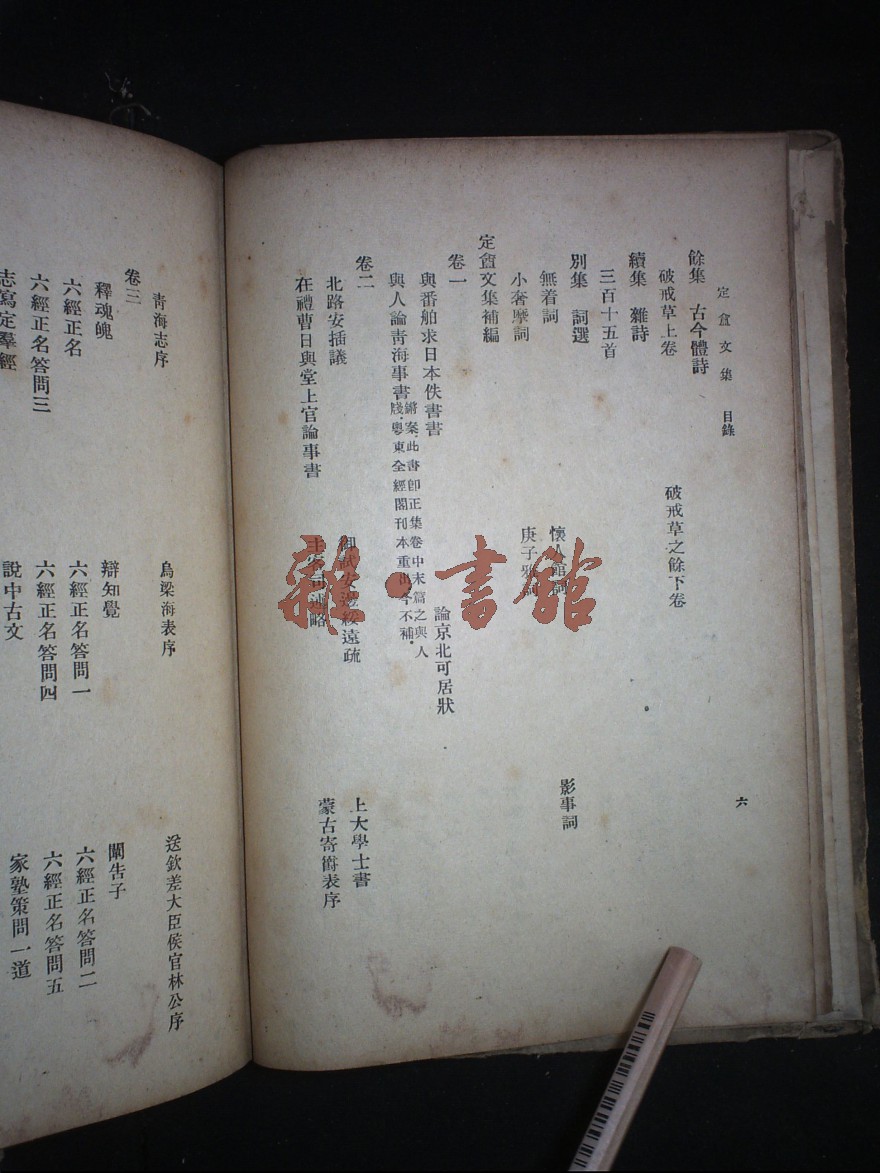 定盦文集 目錄 六
餘集 古今體詩
破戒草上卷 破戒草之餘下卷
續集 雜詩
三百十五首
別集 詞選
無着詞 懷人館詞 影事詞
小奢摩詞 庚子雅詞
定盦文集補編
卷一
與番舶求日本佚書書 論京北可居狀
與人論青海事書 鏘案·此書卽正集卷中末篇之與人
牋·粵東全經閣刊本重出今不補·
卷二
北路安插議 御試安邊綏遠疏 上大學士書
在禮曹日與堂上官論事書 主客司述略 蒙古寄爵表序
青海志序 烏梁海表序 送欽差大臣侯官林公序
卷三
釋魂魄 辯知覺 闡告子
六經正名 六經正名答問一 六經正名答問二
六經正名答問三 六經正名答問四 六經正名答問五
志寫定羣經 說中古文 家塾策問一道
雜·書館